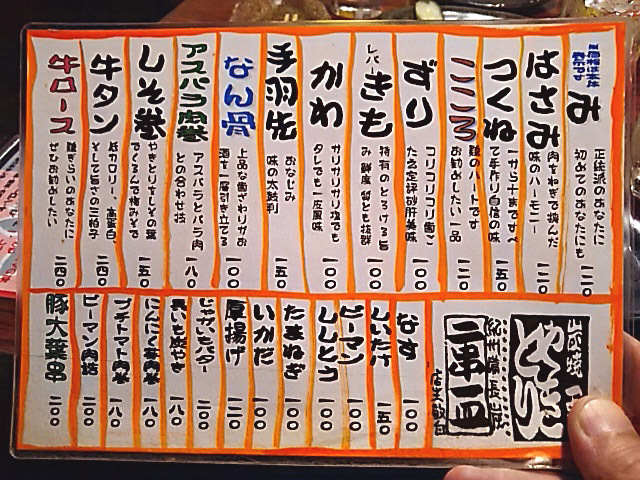 み
正統派のあなたに
初めてのあなたにも
一二〇
はさみ
肉をねぎで挟んだ
味のハーモニー
一二〇
つくね
一から十まですべ
て手作り自信の味
一五〇
こころ
鶏のハートです
お勧めしたい一品
一二〇
ずり
コリコリコリ歯ご
たえ定評砂肝美味
一〇〇
レバー
きも
特有のとろける旨
み鮮度質とも抜群
一〇〇
かわ
サリサリサリ塩でも
タレでも一流風味
一〇〇
手羽先
おなじみ
味の太鼓判
一五〇
なん骨
上品な歯ざわりがお
酒を一層引き立てる
一〇〇
アスパラ肉巻
アスパラとバラ肉
との合わせ技
一八〇
しそ巻
やきとりをしその葉
でくるんで梅みそで
一五〇
牛タン
低カロリー、高蛋白、
そして旨さの三拍子
二四〇
牛ロース
鶏ぎらいのあなたに
ぜひお勧めしたい
二四〇
炭焼
やきとり
紀州備長炭
二串一皿
店主敬白
なす
一〇〇
しいたけ
一五〇
ピーマン
一〇〇
ししとう
一〇〇
たまねぎ
一〇〇
いかだ
一〇〇
厚揚げ
一二〇
じゃがいもバター
二〇〇
長いも炭やき
一八〇
にんにく芽肉巻
一八〇
プチトマト肉巻
一八〇
ピーマン肉詰
二〇〇
豚大葉串
二〇〇